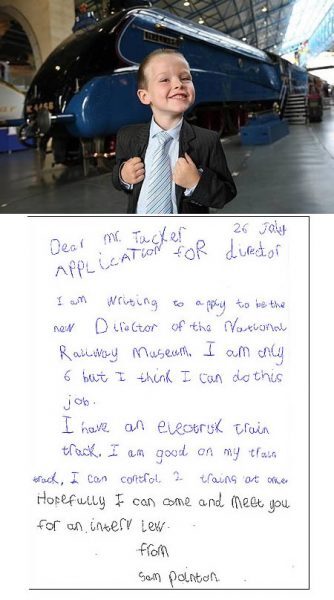 4468
Dear mr. Tucker 26 July
APPLICATION FOR director
I am writing to apply to be the
new Director of the National
Railway Museum. I am only
6 but I think I can do this
job.
I have an electruk train
track. I am good on my train
track. I can control 2 trains at once
Hopefully I can come and meet you
for an interview.
from
Sam Pointon